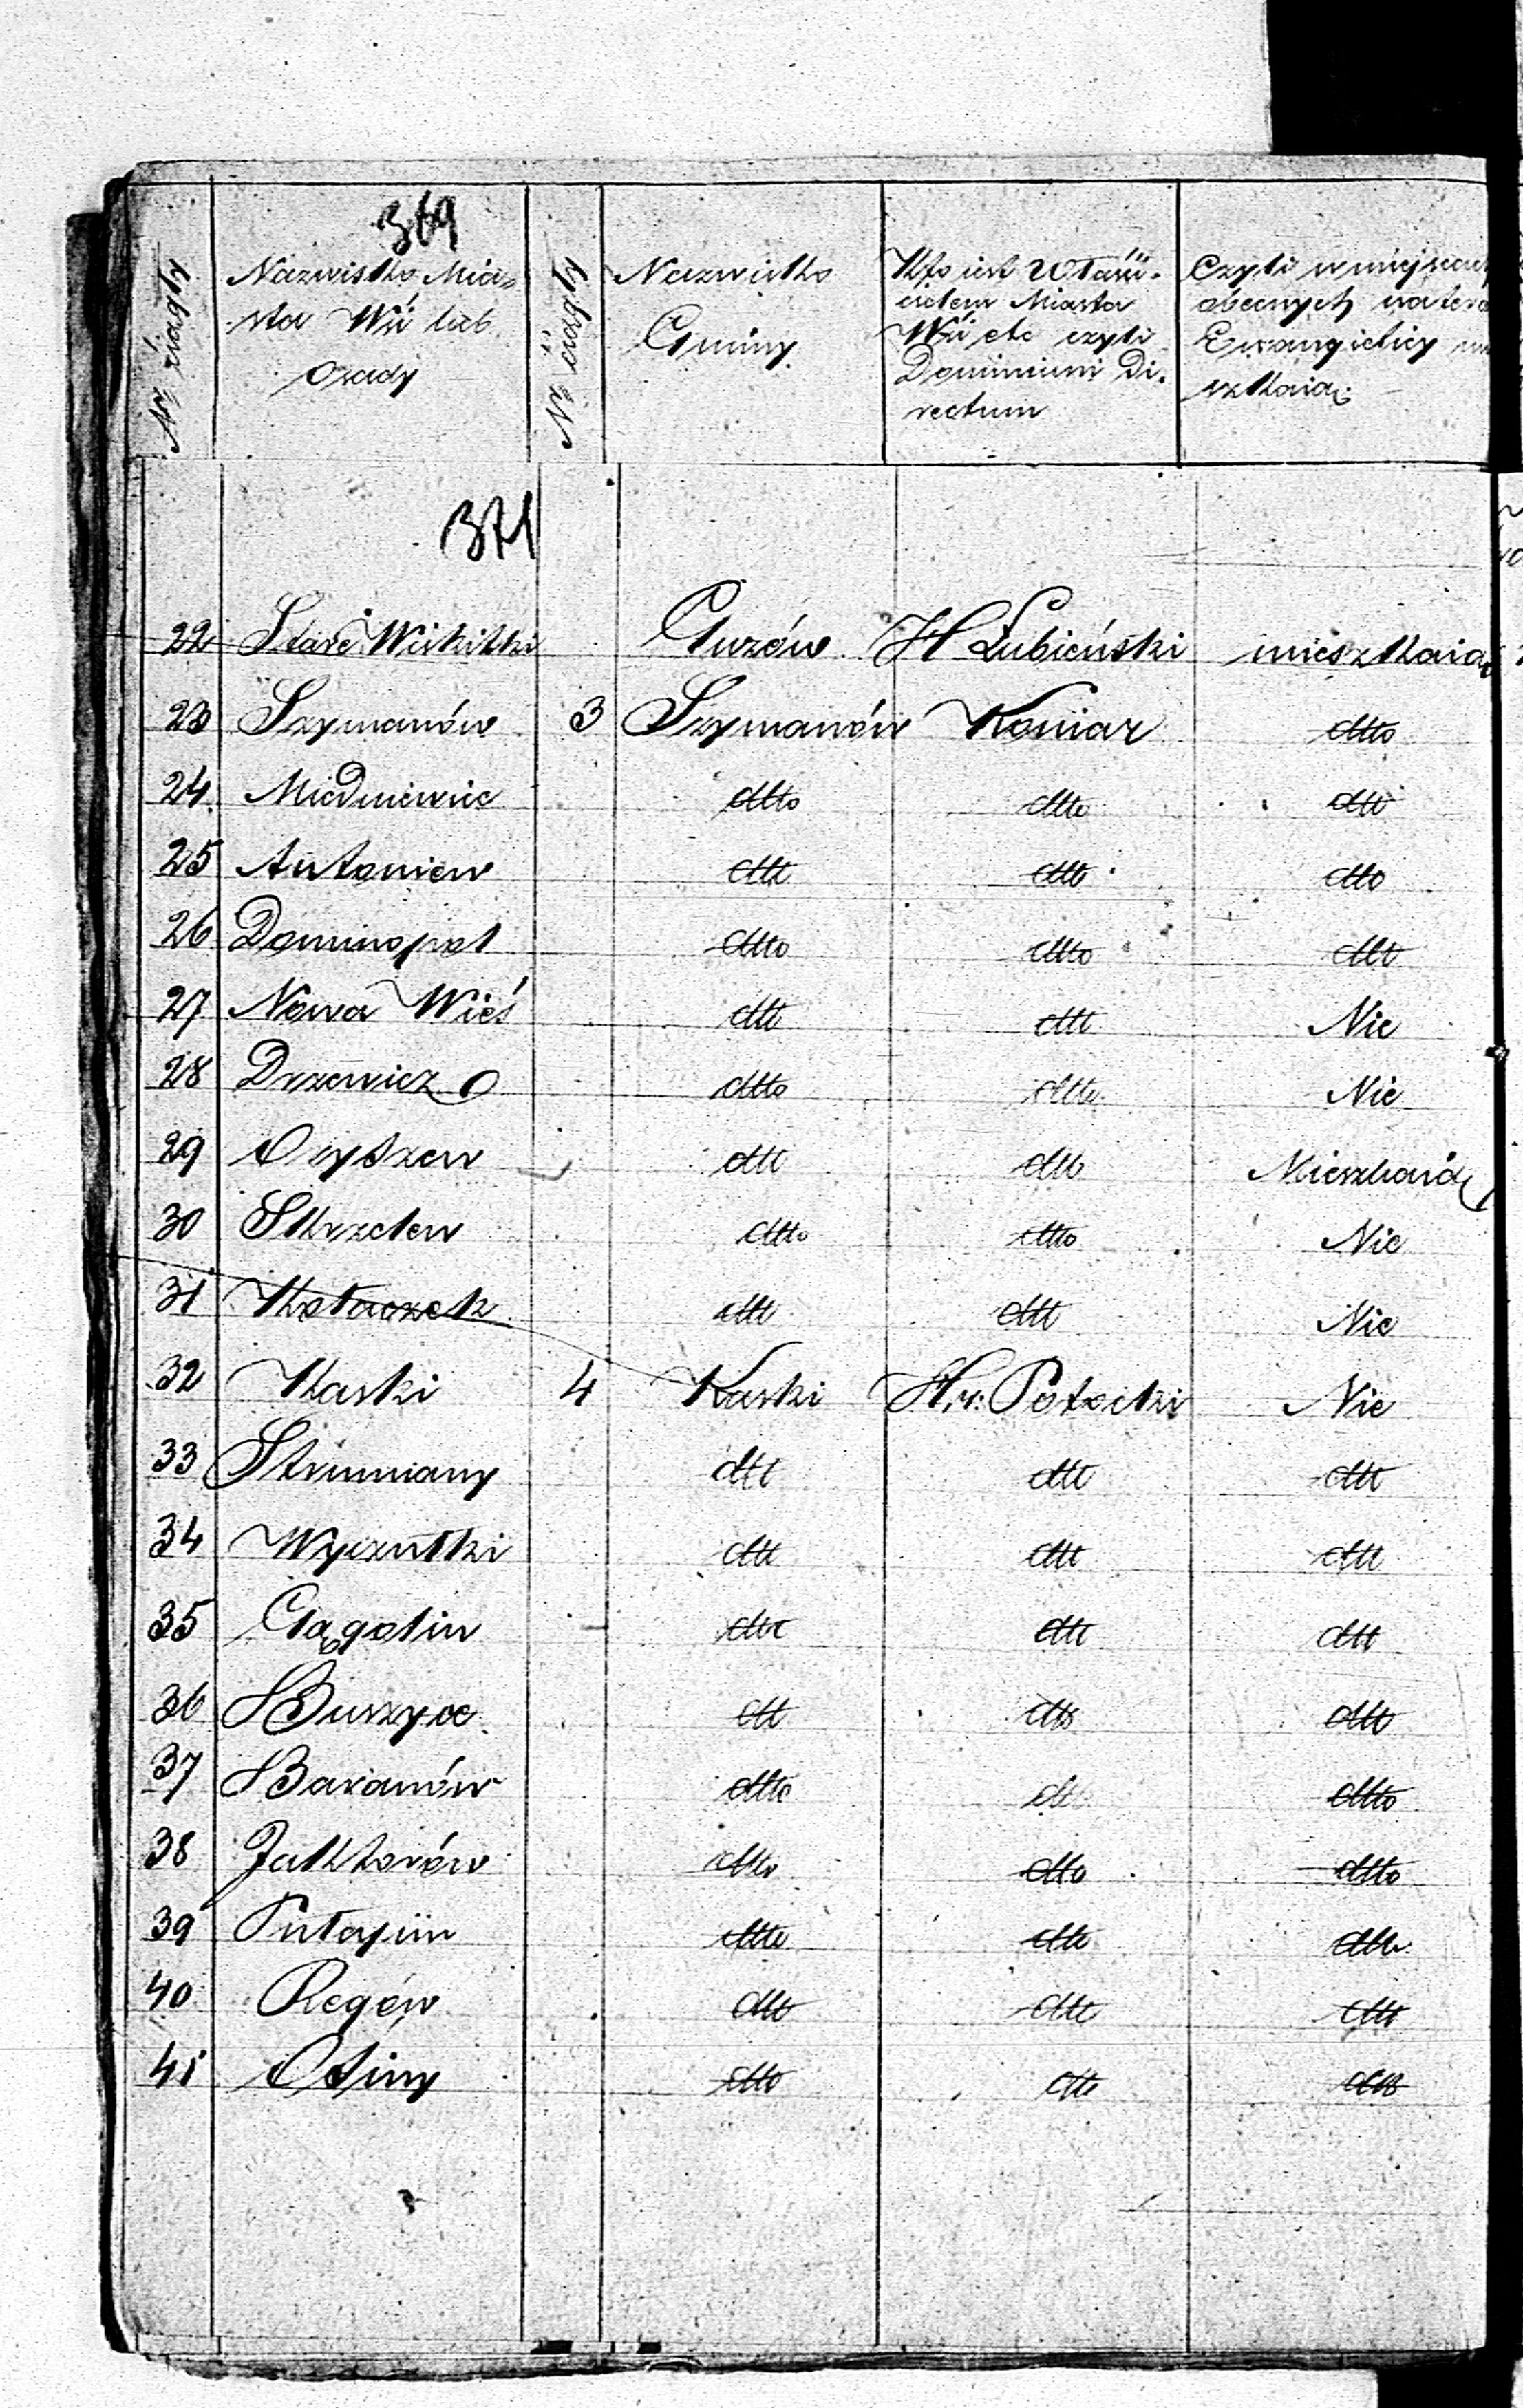 369
Nr ciągły
Nazwisko Mia=
sta Wsi lub
Osady
Nr ciągły
Nazwisko
Gminy
Kto iest Właści-
cielem Miasta
Wsi etc czyli
Dominium Di.
rectum
Czyli w miejscach
obecnych
Ewangielicy
szkaią
371
22 Stare Wiskitki Guzów H Łubieński mieszkaią
23 Szymanów 3 Szymanów Koniar dtto
24 Miedniewice dtto dtto dtto
25 Antoniew dtto dtto dtto
26 Dominopol dtto dtto dtto
27 Nowa Wieś dtto dtto Nie
28 Drzewicz dtto dtto Nie
29 Oryszew dtto dtto Mieszkaią
30 Skrzelew dtto dtto Nie
31 Kołaczek dtto dtto Nie
32 Kaski 4 Kaski Hr: Potocki Nie
33 Strumiany dtto dtto dtto
34 Wyczułki dtto dtto dtto
35 Gągolin dtto dtto dtto
36 Buszyce dtto dtto dtto
37 Baranów dtto dtto dtto
38 Jaktorów dtto dtto dtto
39 dtto dtto dtto
40 Regów dtto dtto dtto
41 dtto dtto dtto